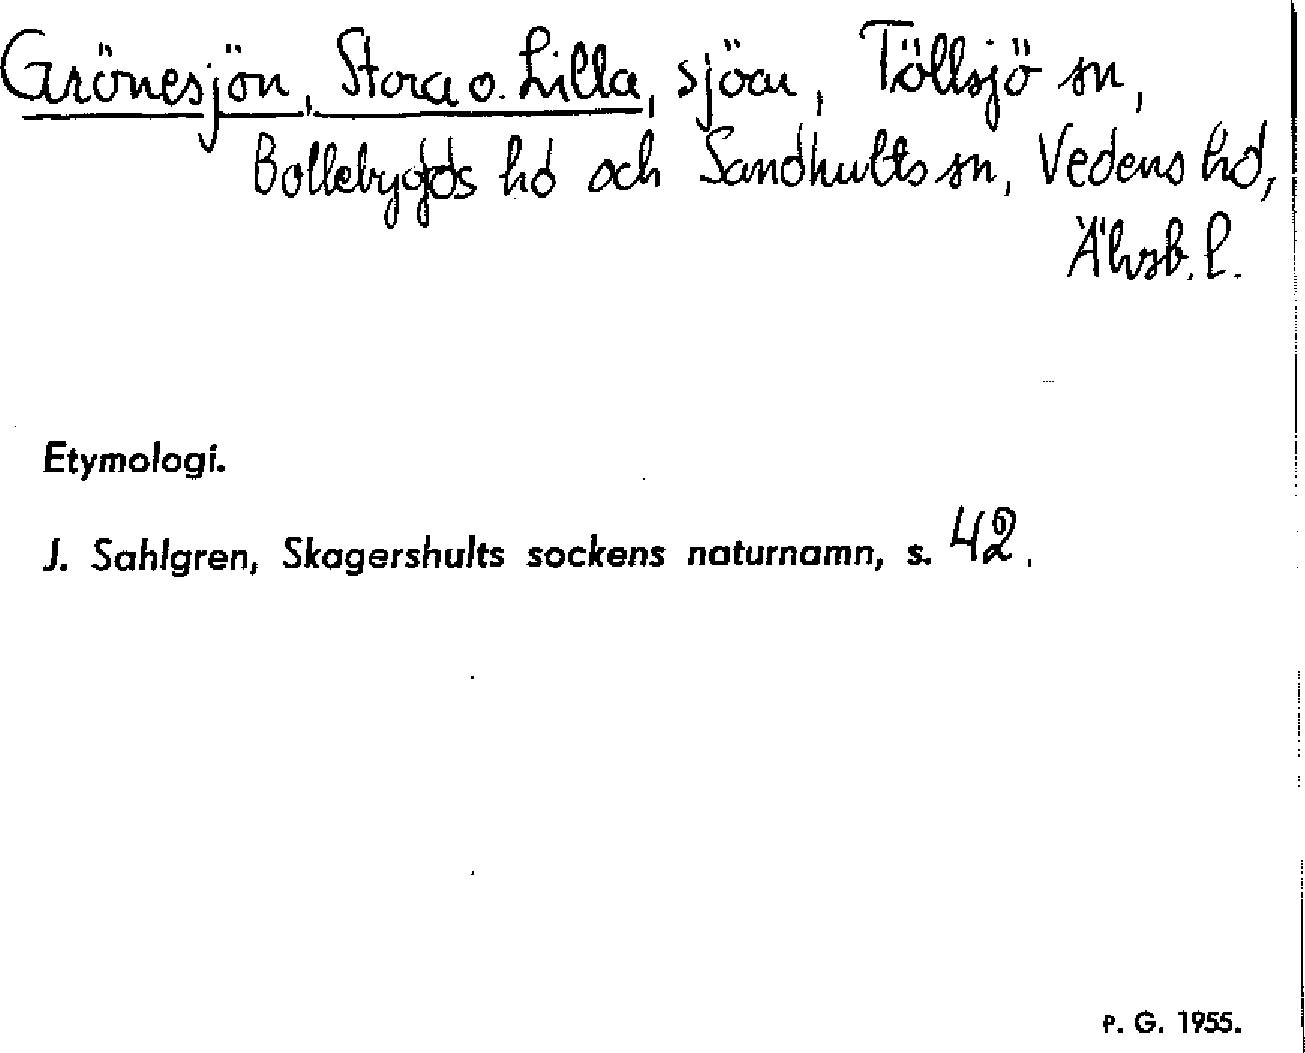 Grönesjön, Stora o. Lilla, sjöar, Töllsjö sn,
Bollebygds hd och Sandhults sn, Vedens hd,
Älvsb. l.
Etymologi.
J. Sahlgren, Skagershults sockens naturnamn, s. 42.
P. G. 1955.